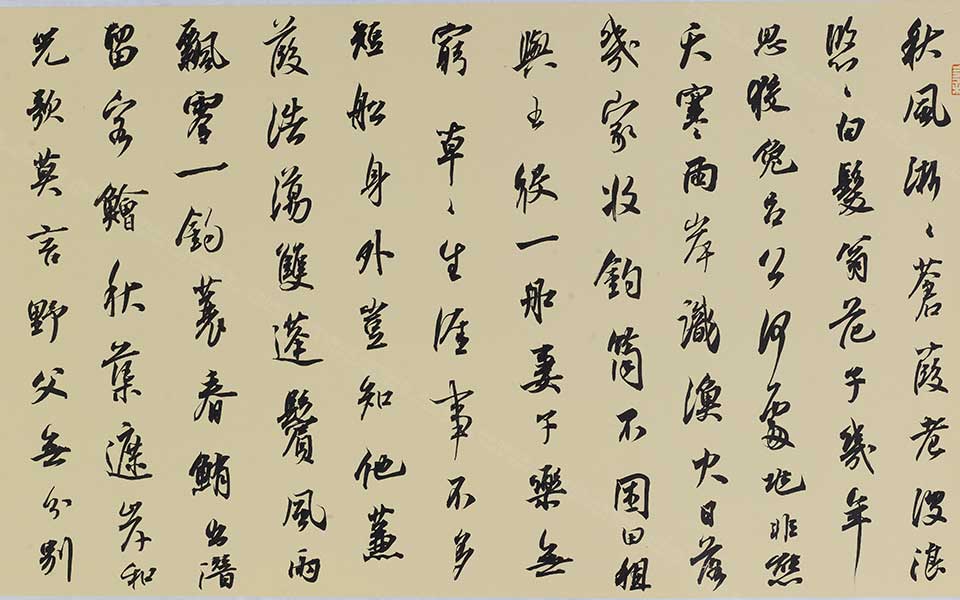 秋風淅〻蒼葭老波浪
悠〻白髮翁范子幾年
思狡兔呂公何處兆非熊
天寒兩岸識漁火日落
幾家收釣筒不困田租
與王役一船妻子樂無
窮 草〻生涯事不多
短船身外豈知他蒹
葭浩蕩雙蓬鬢風雨
飄零一釣蓑春鮪出潛
留客鱠秋蕖遮岸和
兒歌莫言野父無分別